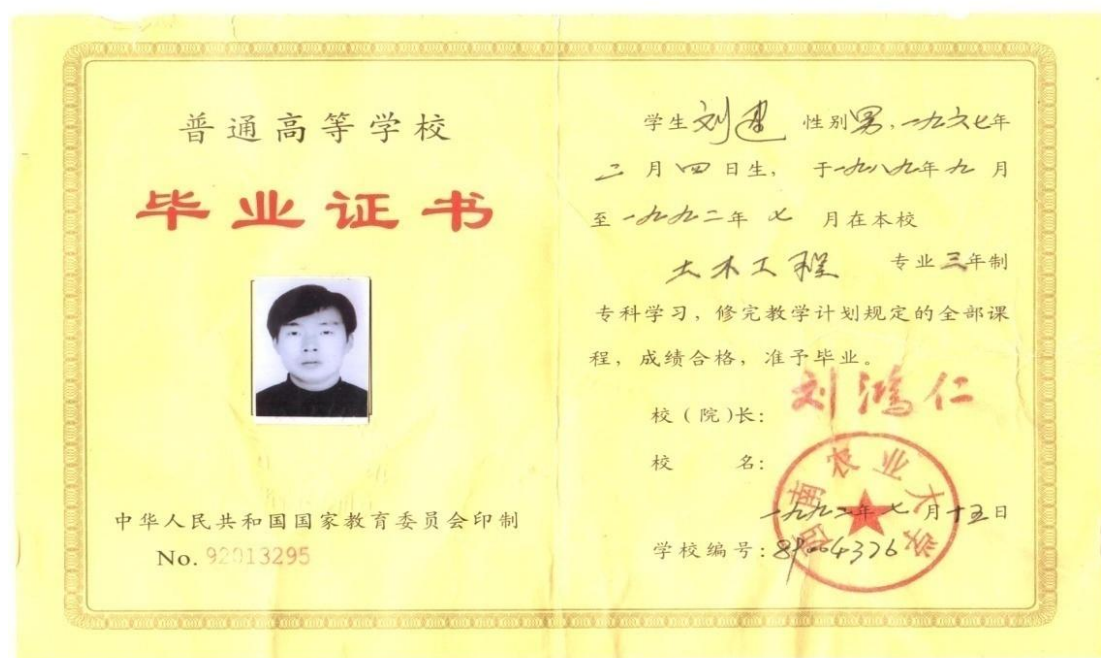 普通高等学校
毕业证书
中华人民共和国国家教育委员会印制
No. 92013295
学生刘建 性别男，一九六七年
二月四日生， 于一九八九年九月
至一九九二年七月在本校
土木工程 专业三年制
专科学习，修完教学计划规定的全部课
程，成绩合格，准予毕业。
校（院）长：刘鸿仁
校 名：
西南农业大学
一九九二年七月十五日
学校编号：8904376